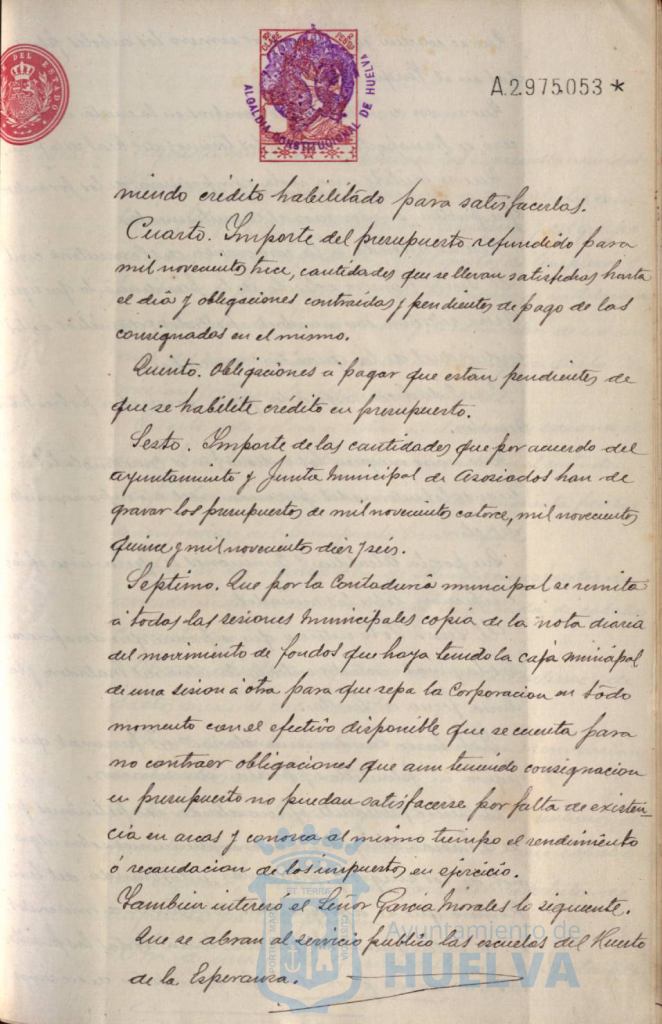 DEL ESTADO
CLASE
PESETAS
ALCALDIA CONSTITUCIONAL DE HUELVA
A.2975053*
niendo crédito habilitado para satisfacerlas.
Cuarto. Importe del presupuesto refundido para
mil novecientos trece, cantidades que se llevan satisfechas hasta
el dia y obligaciones contraidas y pendientes de pago de las
consignadas en el mismo.
Quinto. Obligaciones á pagar que estan pendientes de
que se habilite crédito en presupuesto.
Sesto. Importe de las cantidades que por acuerdo del
ayuntamiento y Junta Municipal de Asosiados han de
gravar los presupuestos de mil novecientos catorce, mil novecientos
quince y mil novecientos diez y seis.
Septimo. Que por la Contaduria municipal se remita
á todas las sesiones municipales copia de la nota diaria
del movimiento de fondos que haya tenido la caja municipal
de una sesion á otra para que sepa la Corporacion en todo
momento con el efectivo disponible que se cuenta para
no contraer obligaciones que aun teniendo consignacion
en presupuesto no puedan satisfacerse por falta de existen-
cia en arcas y conozca al mismo tiempo el rendimiento
ó recaudacion de los impuestos en ejercicio.
Tambien interesó el Señor Garcia Morales lo siguiente.
Que se abran al servicio publico las escuelas del Huerto
de la Esperanza.
Ayuntamiento de
HUELVA